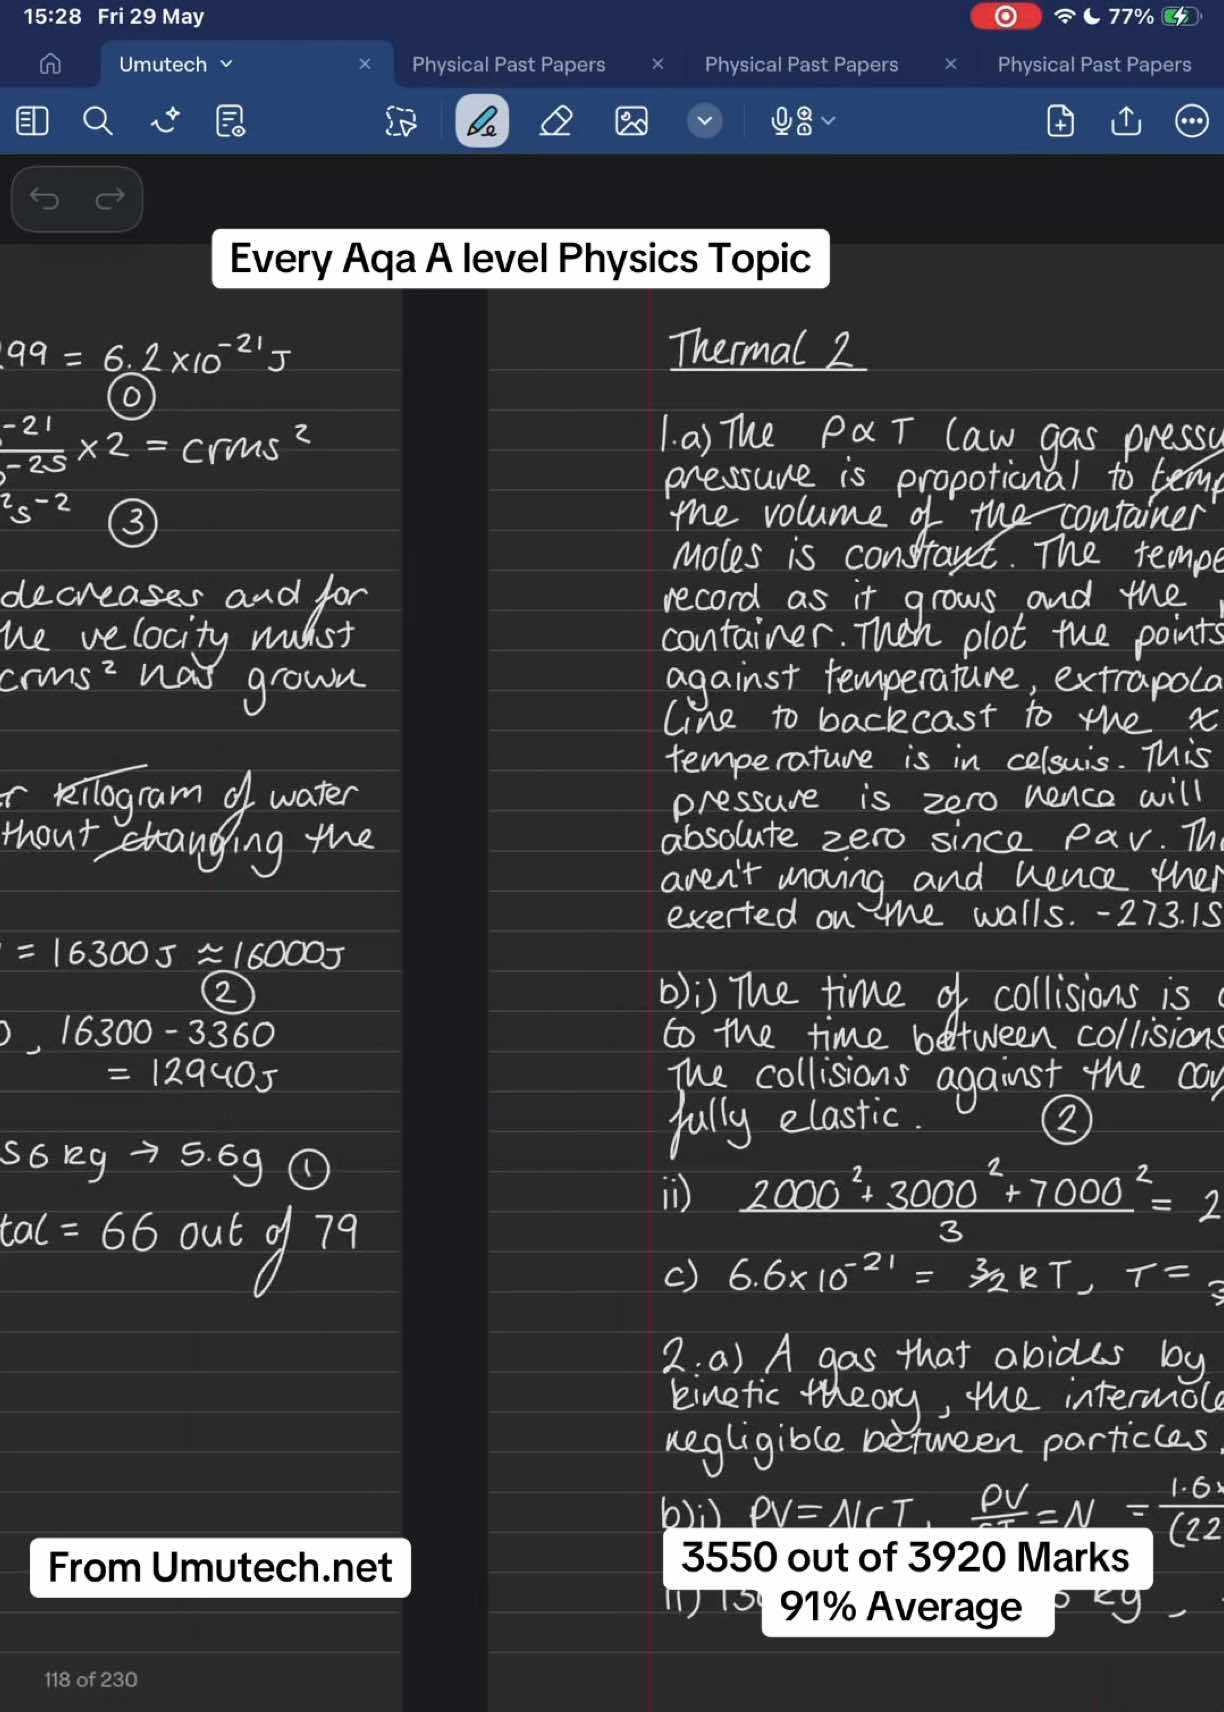 15:28 Fri 29 May
77%
Umutech
Physical Past Papers
Physical Past Papers
Physical Past Papers
Every Aqa A level Physics Topic
.99 = 6.2 x10⁻²¹J
0
⁻²¹
⁻²⁵ x 2 = crms²
²s⁻²
3
decreases and for
the velocity must
crms² has grown
r kilogram of water
thout changing the
= 16300J ≈ 16000J
2
, 16300 - 3360
= 12940J
56 kg → 5.6g 1
tal = 66 out of 79
From Umutech.net
118 of 230
Thermal 2
1.a) The P∝T law gas pressu
pressure is propotional to temp
the volume of the container
moles is constant. The tempe
record as it grows and the
container. Then plot the points
against temperature, extrapola
line to backcast to the x
temperature is in celsuis. This
pressure is zero hence will
absolute zero since Pαv. Th
aren't moving and hence ther
exerted on the walls. -273.15
b)i) The time of collisions is
to the time between collisions
The collisions against the con
fully elastic. 2
ii) 2000² + 3000² + 7000² = 2
3
c) 6.6x10⁻²¹ = 3/2 kT, T =
2.a) A gas that abides by
kinetic theory, the intermole
negligible between particles.
b)i) PV = NrT, PV = N = 1.6x
(22
3550 out of 3920 Marks
91% Average
ii) kg,